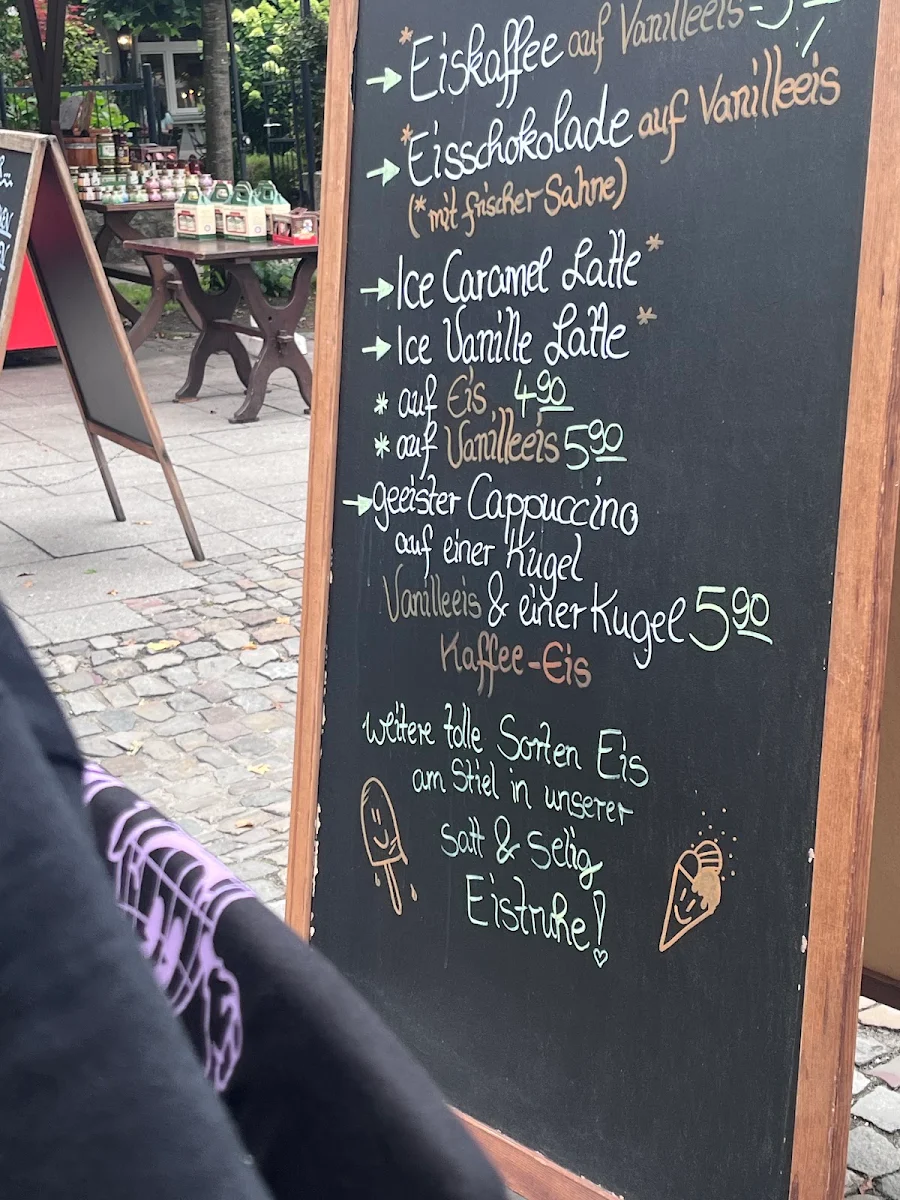 *Eiskaffee auf Vanilleeis
→ *Eisschokolade auf Vanilleeis
(*mit frischer Sahne)
→ Ice Caramel Latte*
→ Ice Vanille Latte*
* auf Eis 4,90
* auf Vanilleeis 5,90
→ geeister Cappuccino
auf einer Kugel
Vanilleeis & einer Kugel 5,90
Kaffee-Eis
weitere tolle Sorten Eis
am Stiel in unserer
satt & selig
Eistruhe!